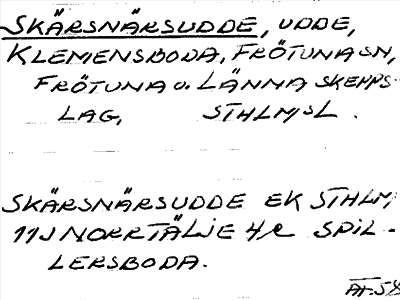 SKÄRSNÄRSUDDE, UDDE,
KLEMENSBODA, FRÖTUNA SN,
FRÖTUNA O. LÄNNA SKEPPS-
LAG, STHLMSL.
SKÄRSNÄRSUDDE EK STHLM,
11J NORRTÄLJE 4 SPIL-
LERSBODA.